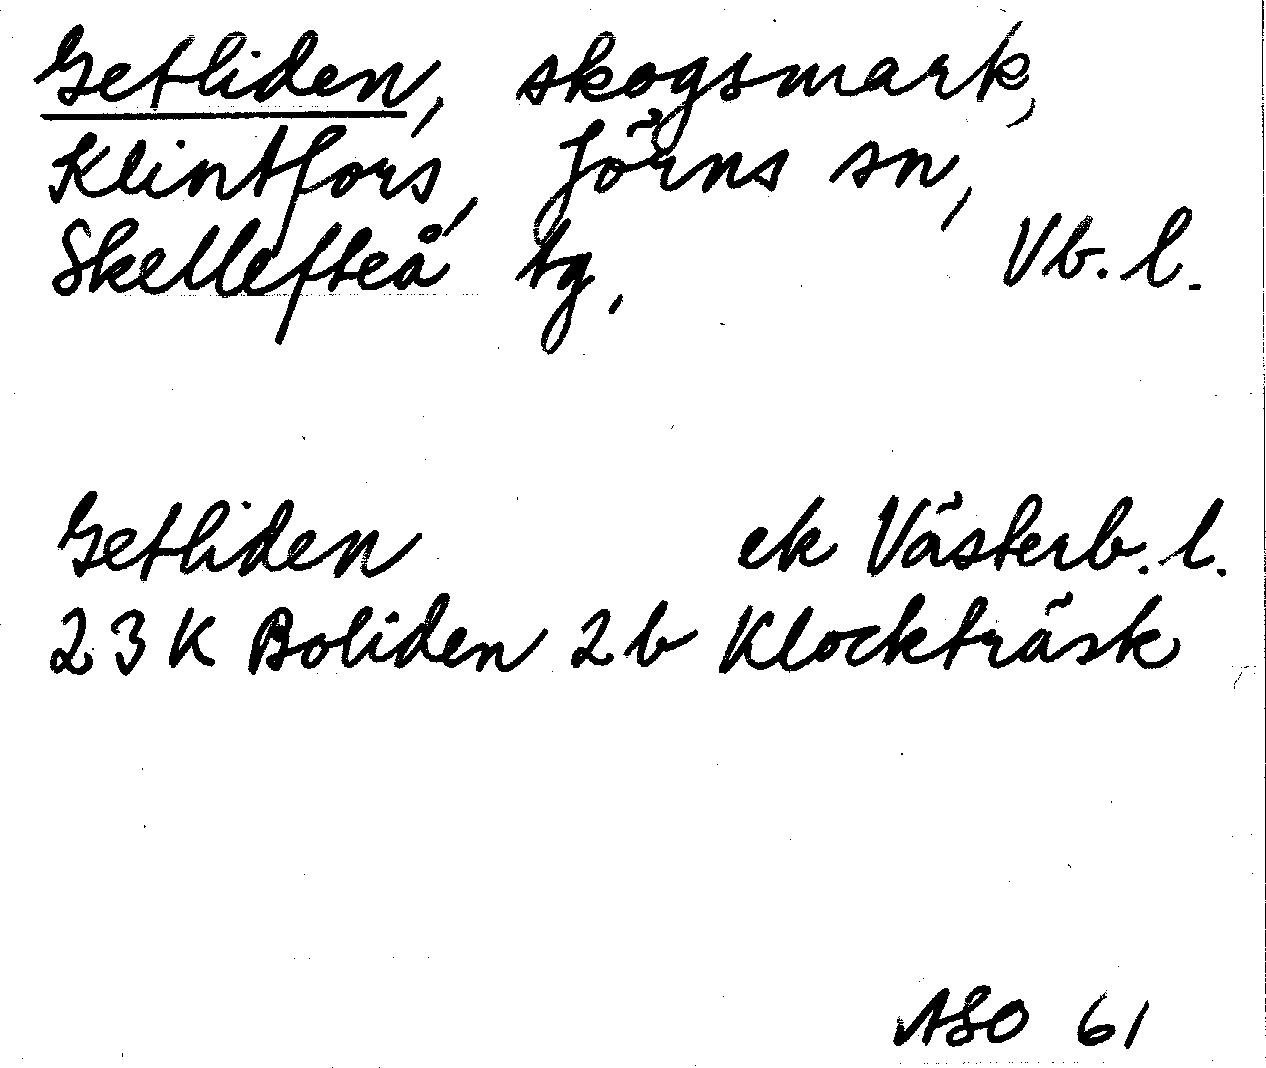 Getliden, skogsmark,
Klintfors, Jörns sn,
Skellefteå tg, Vb. l.
Getliden ek Västerb. l.
23 K Boliden 2b Klockträsk
ASO 61